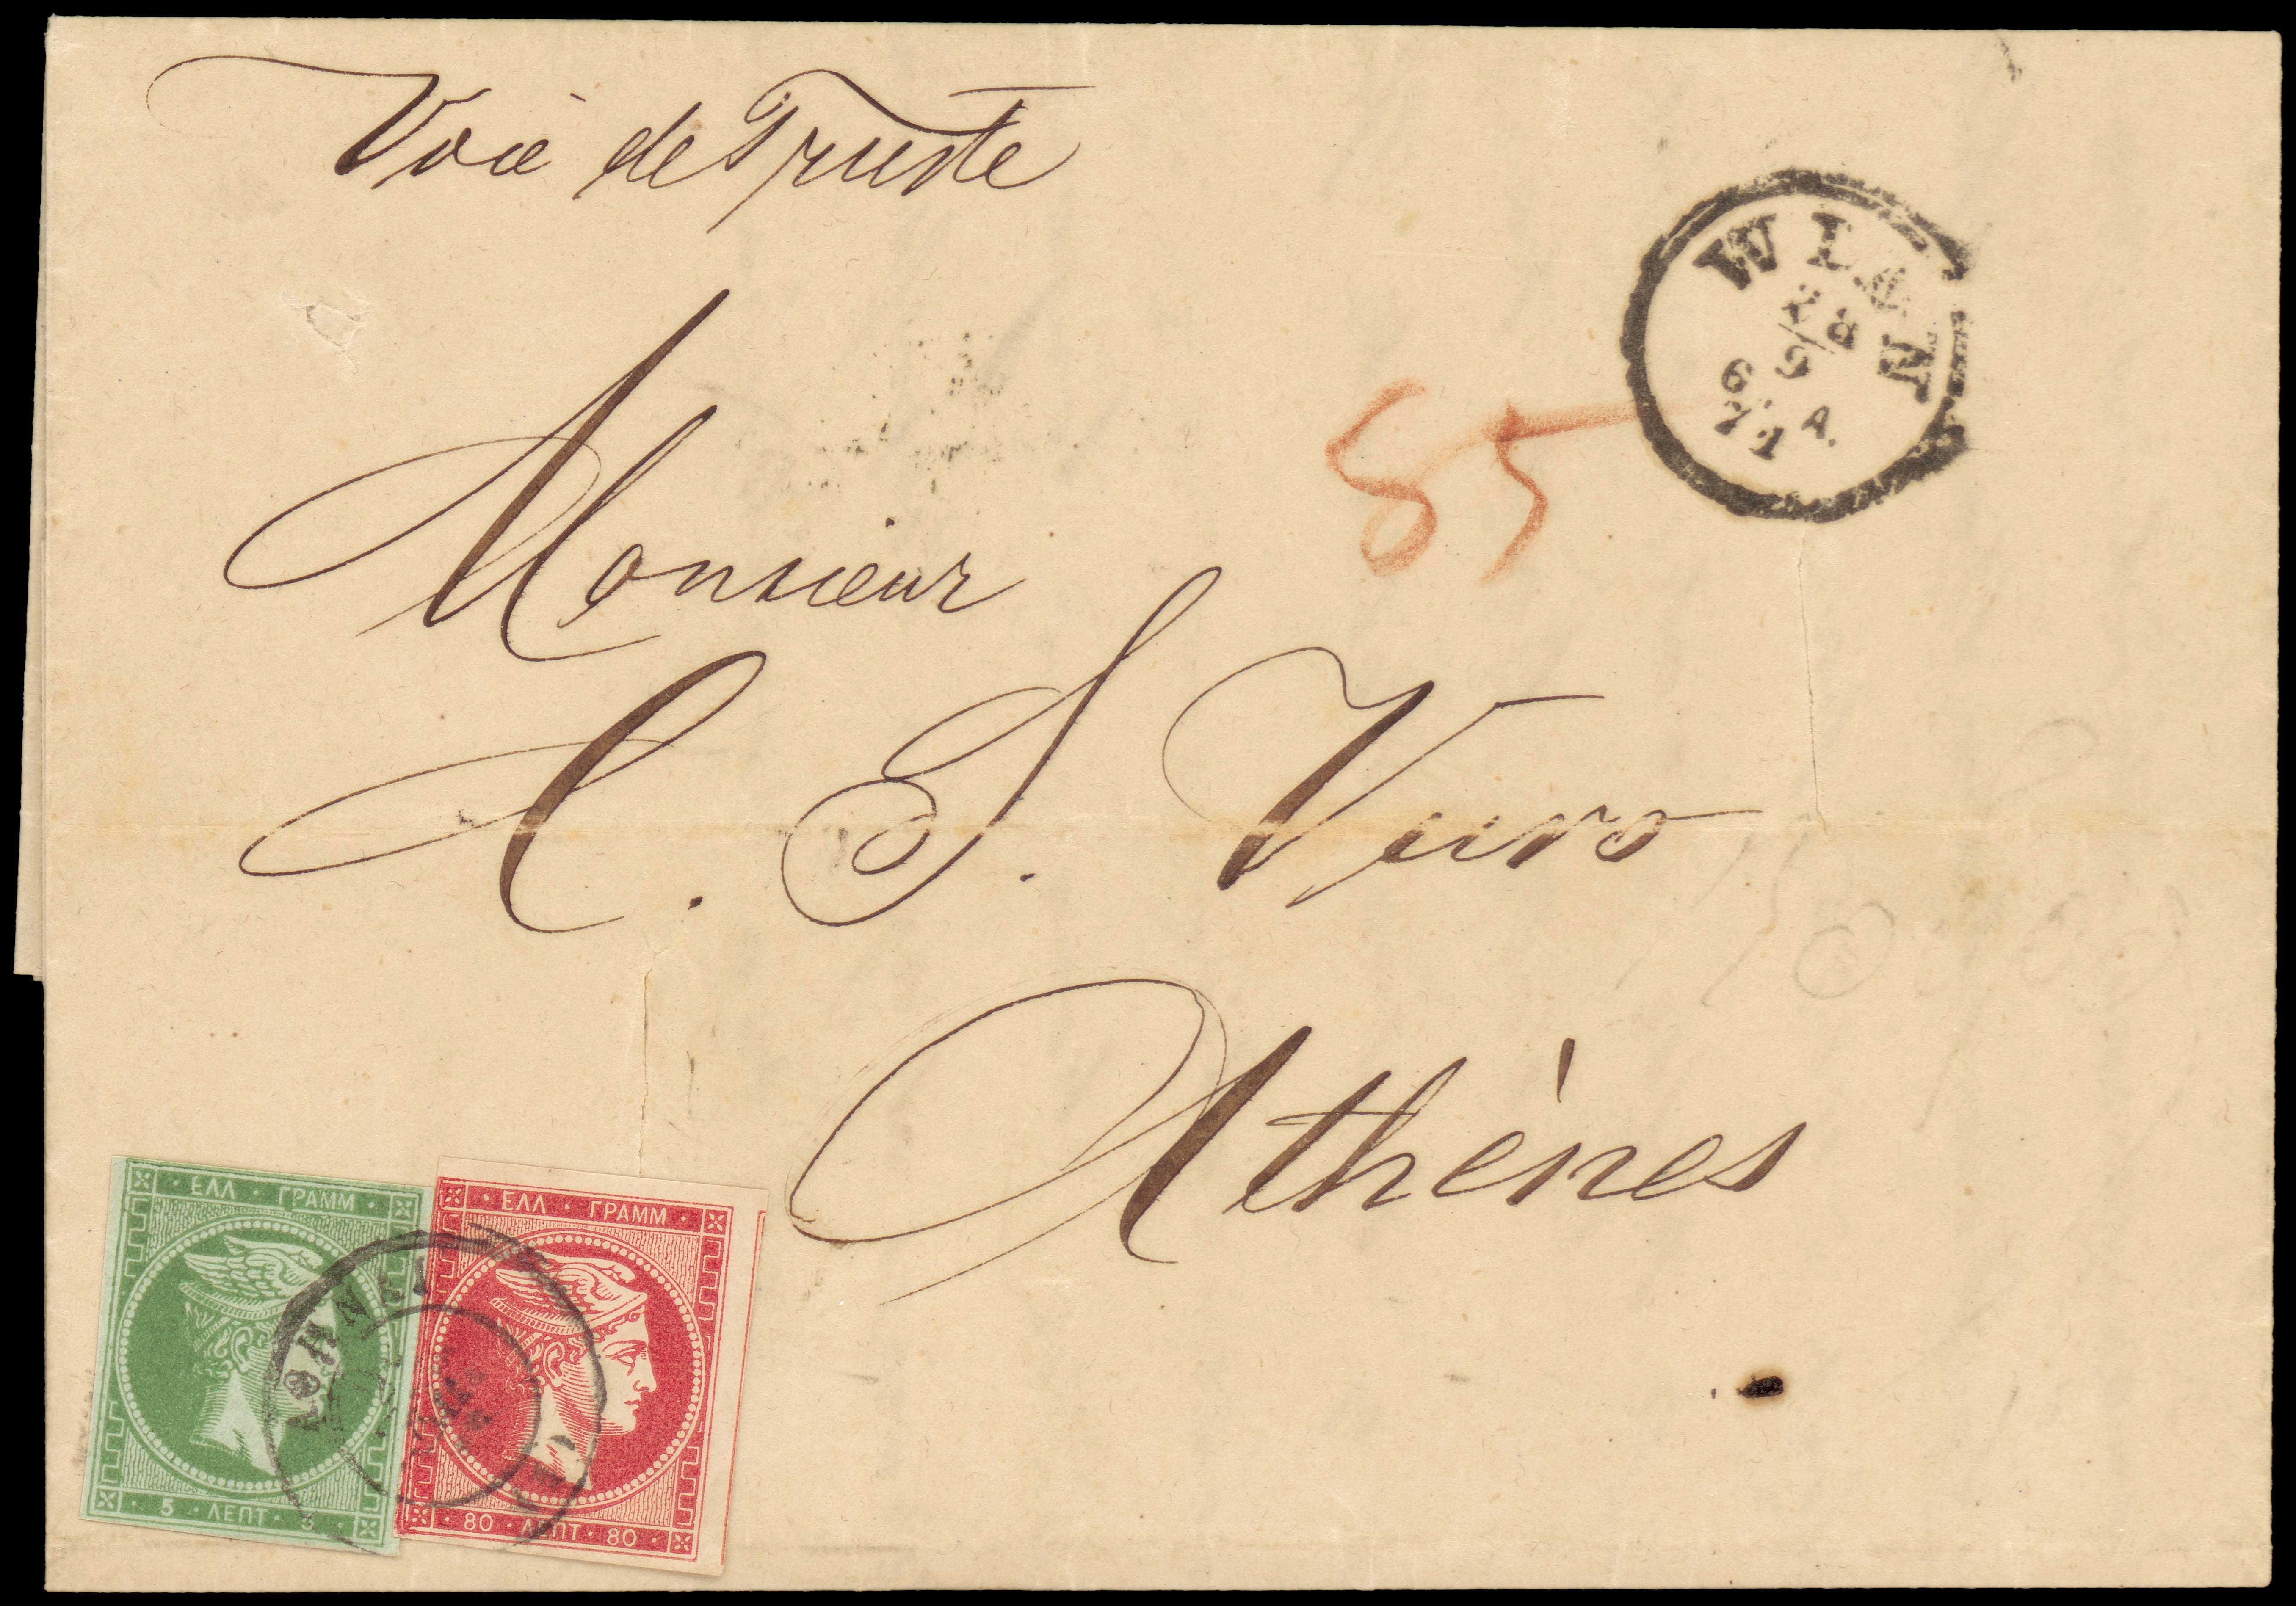 Voie de Trieste
WIEN
28
9
6. A.
71
85
Monsieur
C. S. Vuro
Athènes
ΕΛΛ · ΓΡΑΜΜ ·
5 · ΛΕΠΤ · 5
ΕΛΛ · ΓΡΑΜΜ ·
80 · ΛΕΠΤ · 80
ΑΘΗΝΑΙ